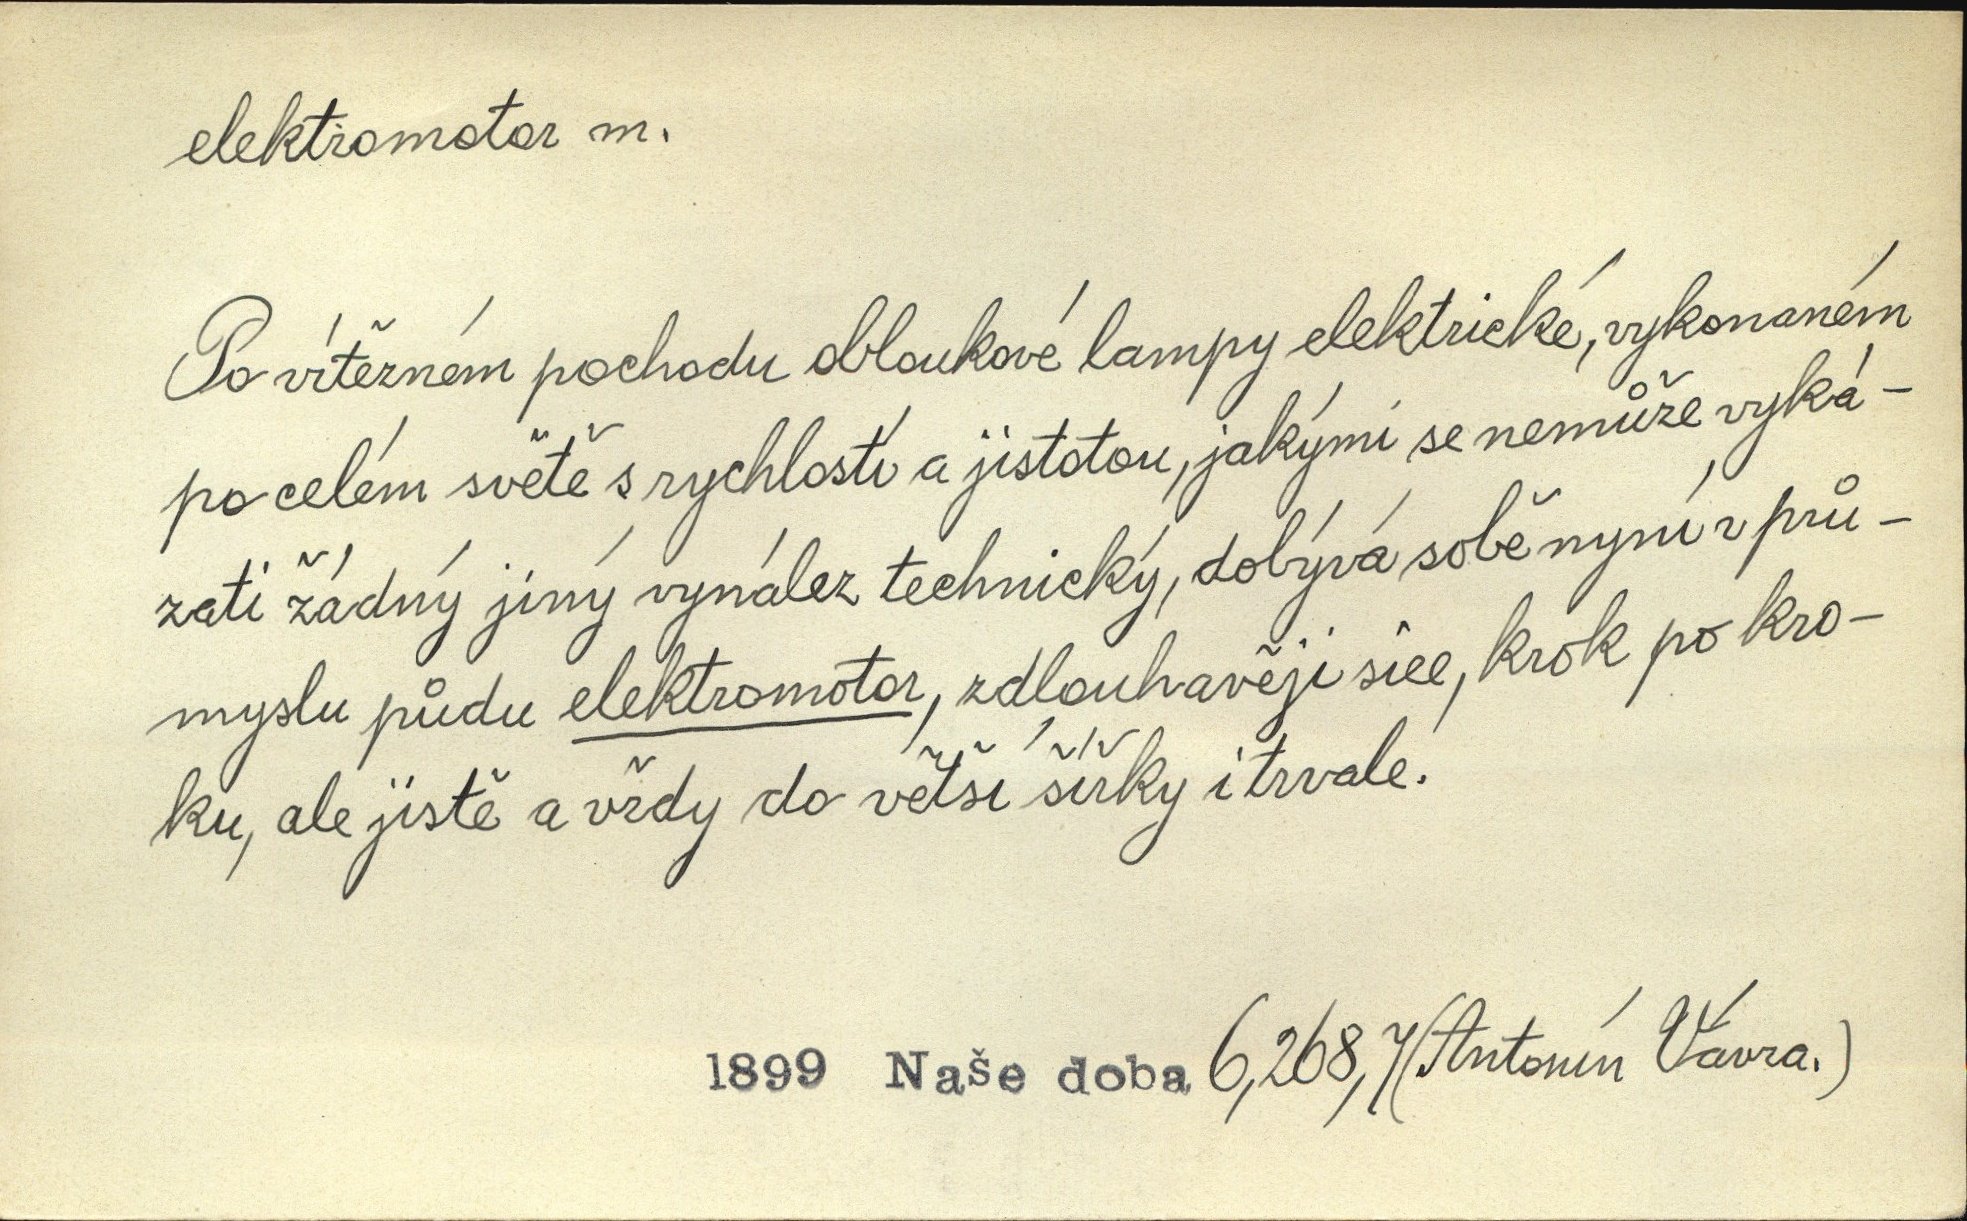 elektromotor m.
Po vítězném pochodu obloukové lampy elektrické, vykonaném
po celém světě s rychlostí a jistotou, jakými se nemůže vyká-
zati žádný jiný vynález technický, dobývá sobě nyní v prů-
myslu půdu elektromotor, zdlouhavěji sice, krok po kro-
ku, ale jistě a vždy do větší šířky i trvale.
1899 Naše doba 6,268,7 (Antonín Vávra.)